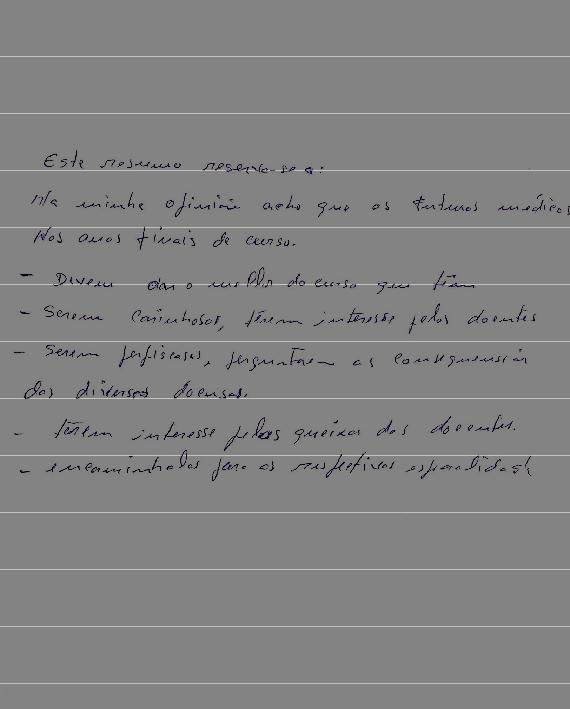 Este resumo reserva-se a:
Na minha opinião acho que os futuros médicos
Nos anos finais de curso.
- Devem dar o melhor do curso que têm
- Serem carinhosos, têrem interesse pelos doentes
- Serem perfiscases, perguntarem as consequensias
das diversas doensas.
- têrem interesse pelas queixas dos doentes.
- encaminhalos para as respectivas